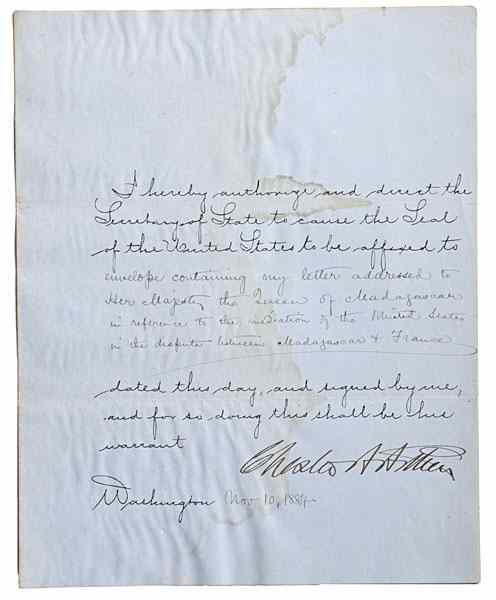 I hereby authorize and direct the
Secretary of State to cause the Seal
of the United States to be affixed to
envelope containing my letter addressed to
Her Majesty the Queen of Madagascar
in reference to the mediation of the United States
in the dispute between Madagascar & France
dated this day, and signed by me,
and for so doing this shall be his
warrant
Chester A Arthur
Washington Nov. 10, 1884